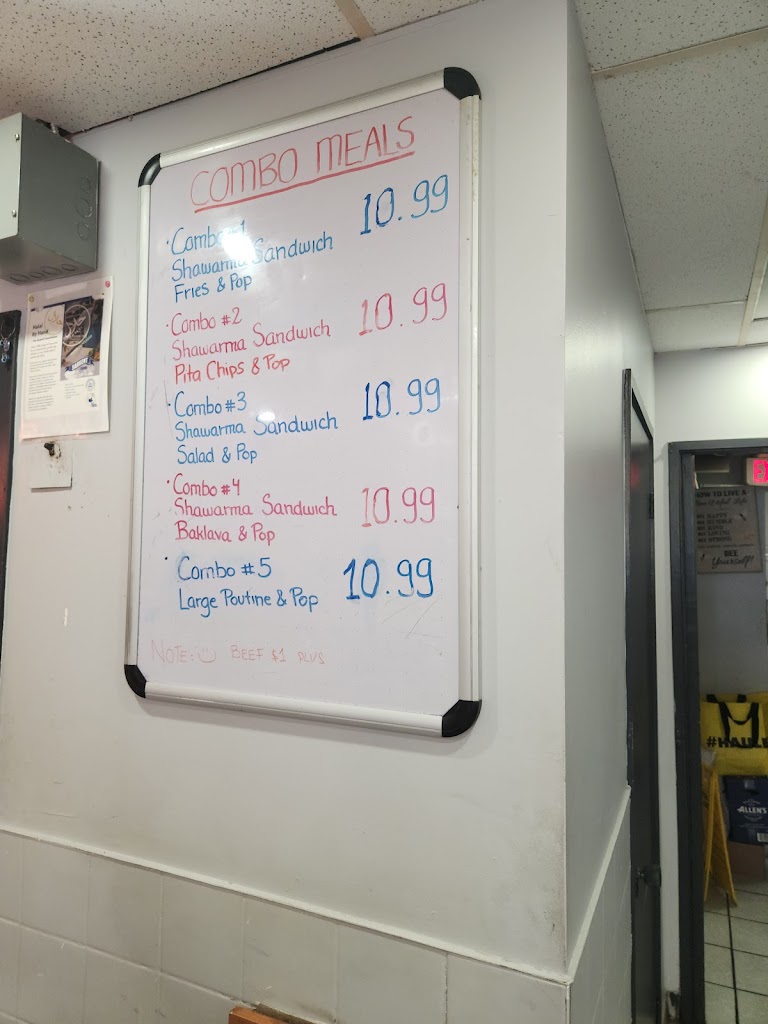 COMBO MEALS
· Combo #1 10.99
Shawarma Sandwich
Fries & Pop
· Combo #2 10.99
Shawarma Sandwich
Pita Chips & Pop
· Combo #3 10.99
Shawarma Sandwich
Salad & Pop
· Combo #4
Shawarma Sandwich 10.99
Baklava & Pop
· Combo #5 10.99
Large Poutine & Pop
NOTE: BEEF $1 PLUS
HOW TO LIVE A
BEE
Yourself!
ALLEN'S